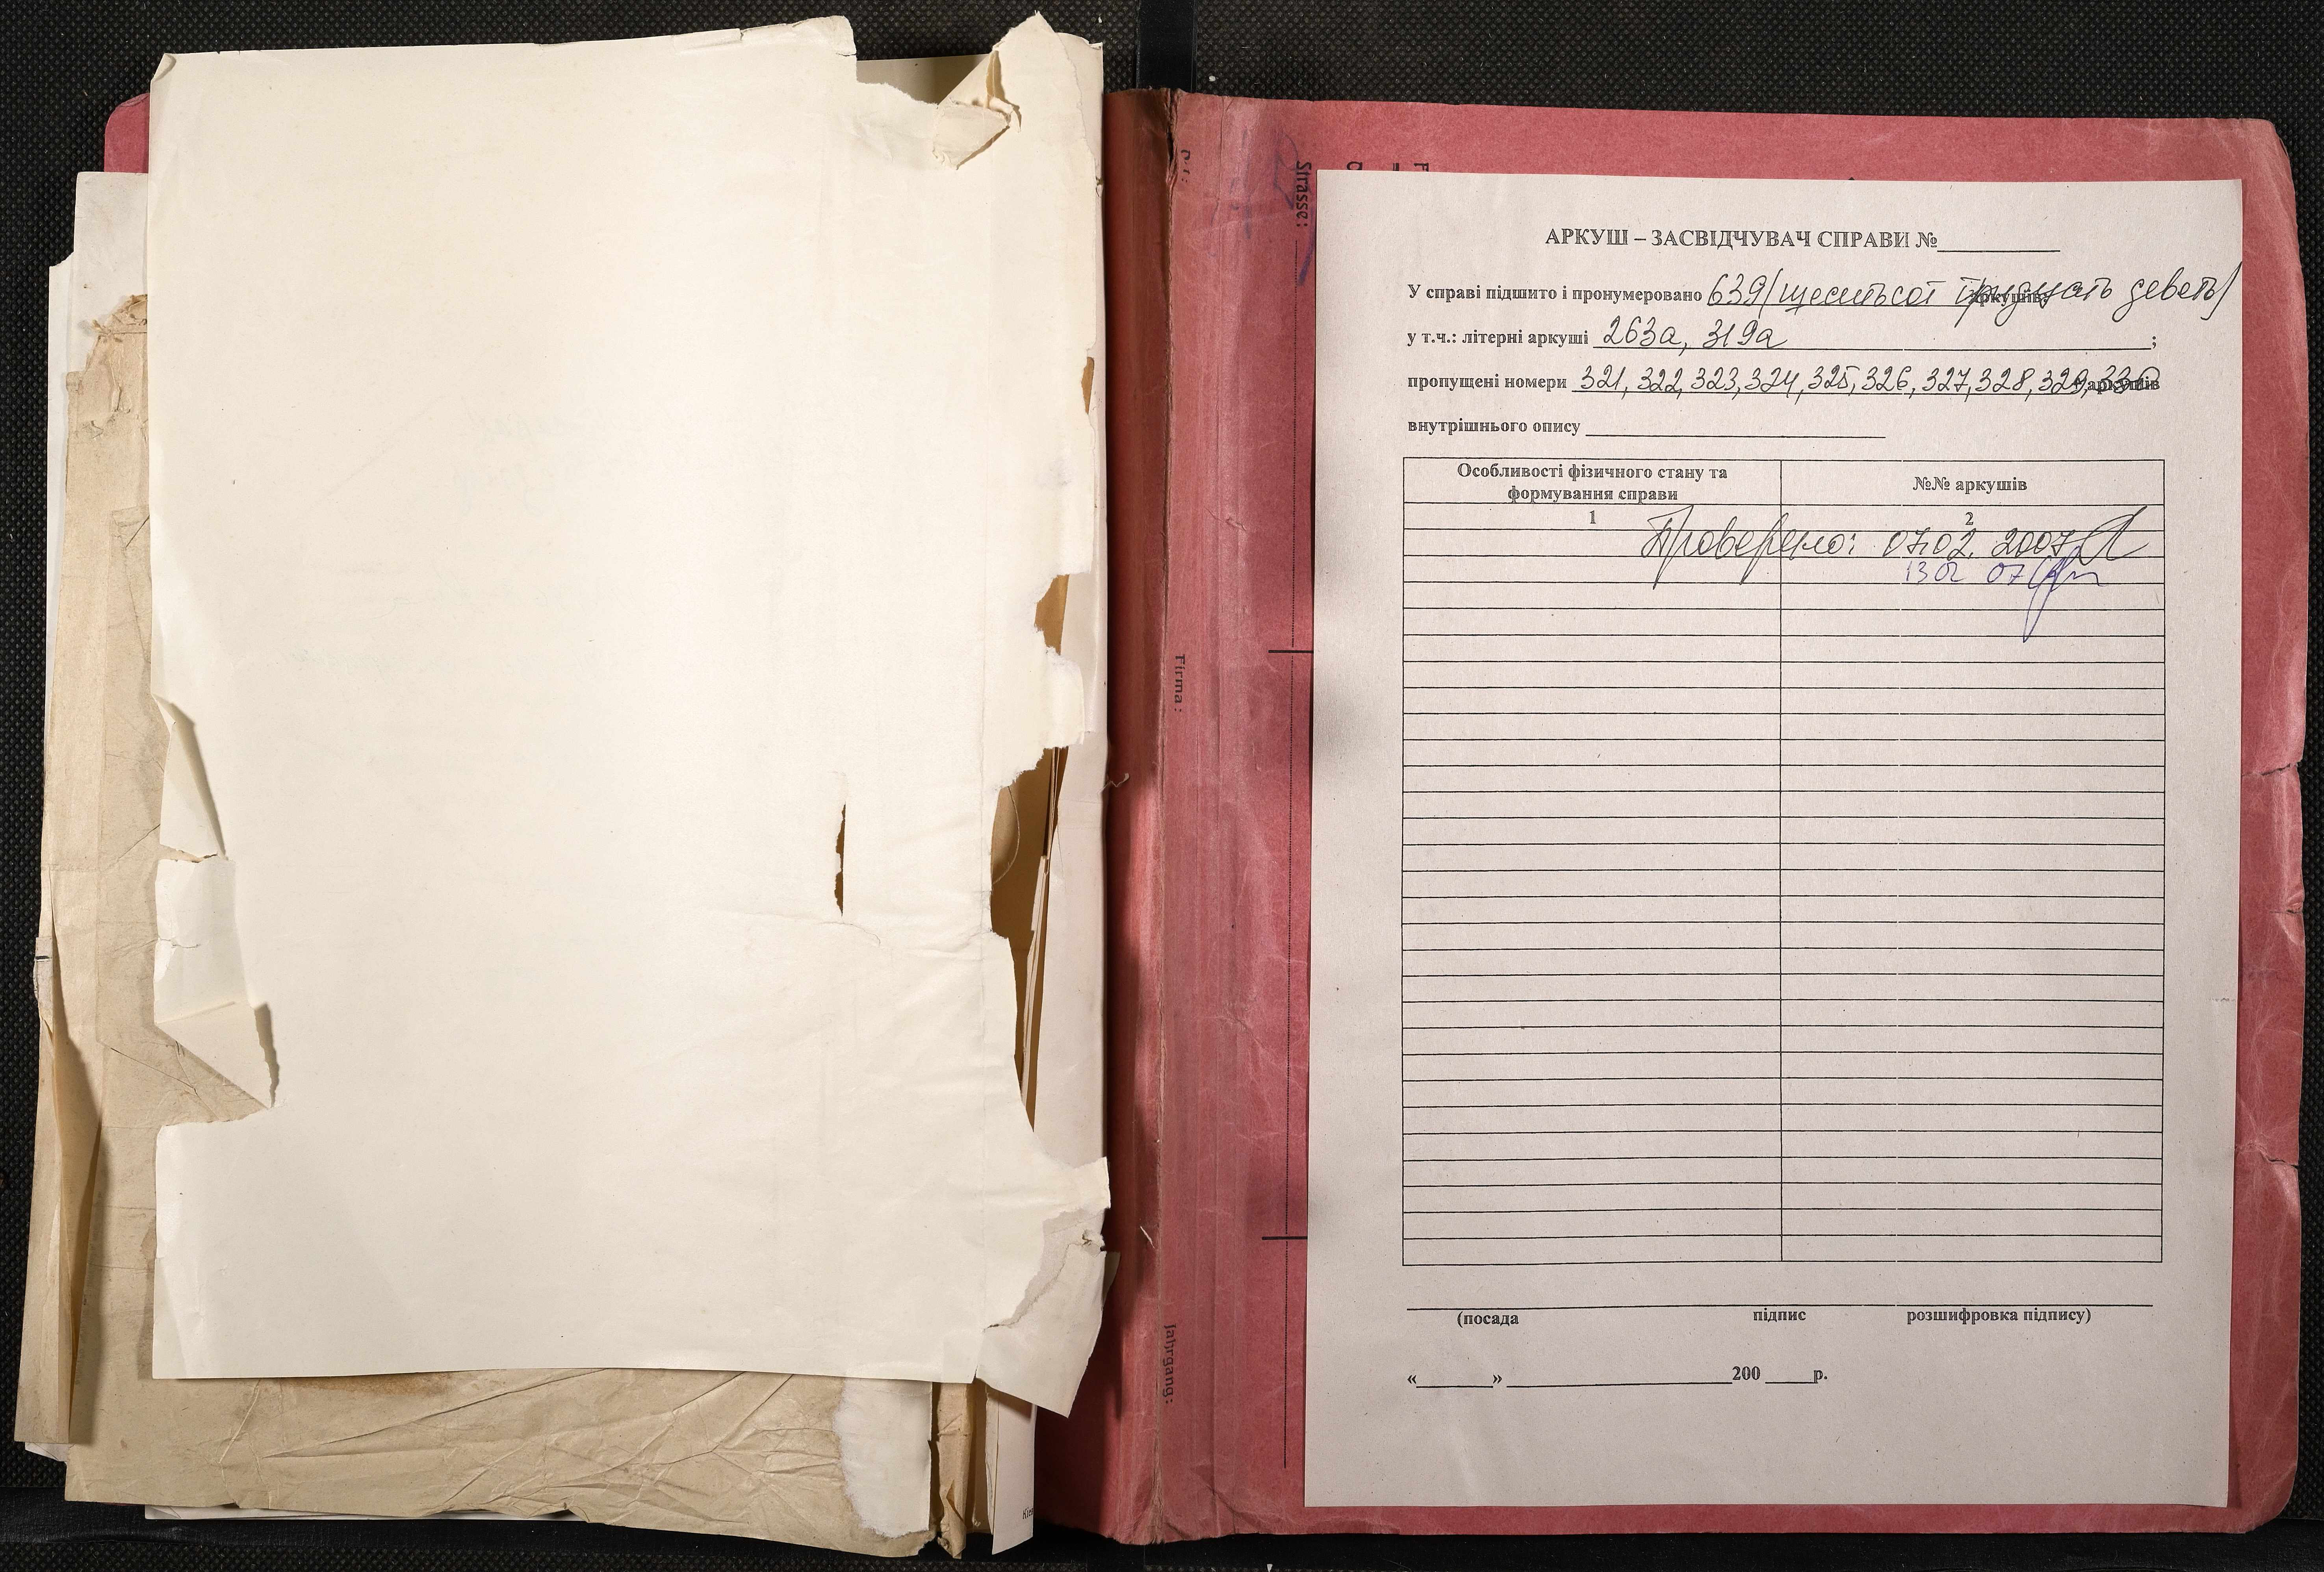 Strasse:
Firma:
Jahrgang:
АРКУШ – ЗАСВІДЧУВАЧ СПРАВИ №
У справі підшито і пронумеровано 639 (шестьсот тридцать девять) аркушів;
у т.ч.: літерні аркуші 263а, 319а ;
пропущені номери 321, 322, 323, 324, 325, 326, 327, 328, 329, 330 + аркушів
внутрішнього опису
Особливості фізичного стану та формування справи
№№ аркушів
1
2
Проверено: 07.02.2007
13 02 07
(посада підпис розшифровка підпису)
« » 200 р.